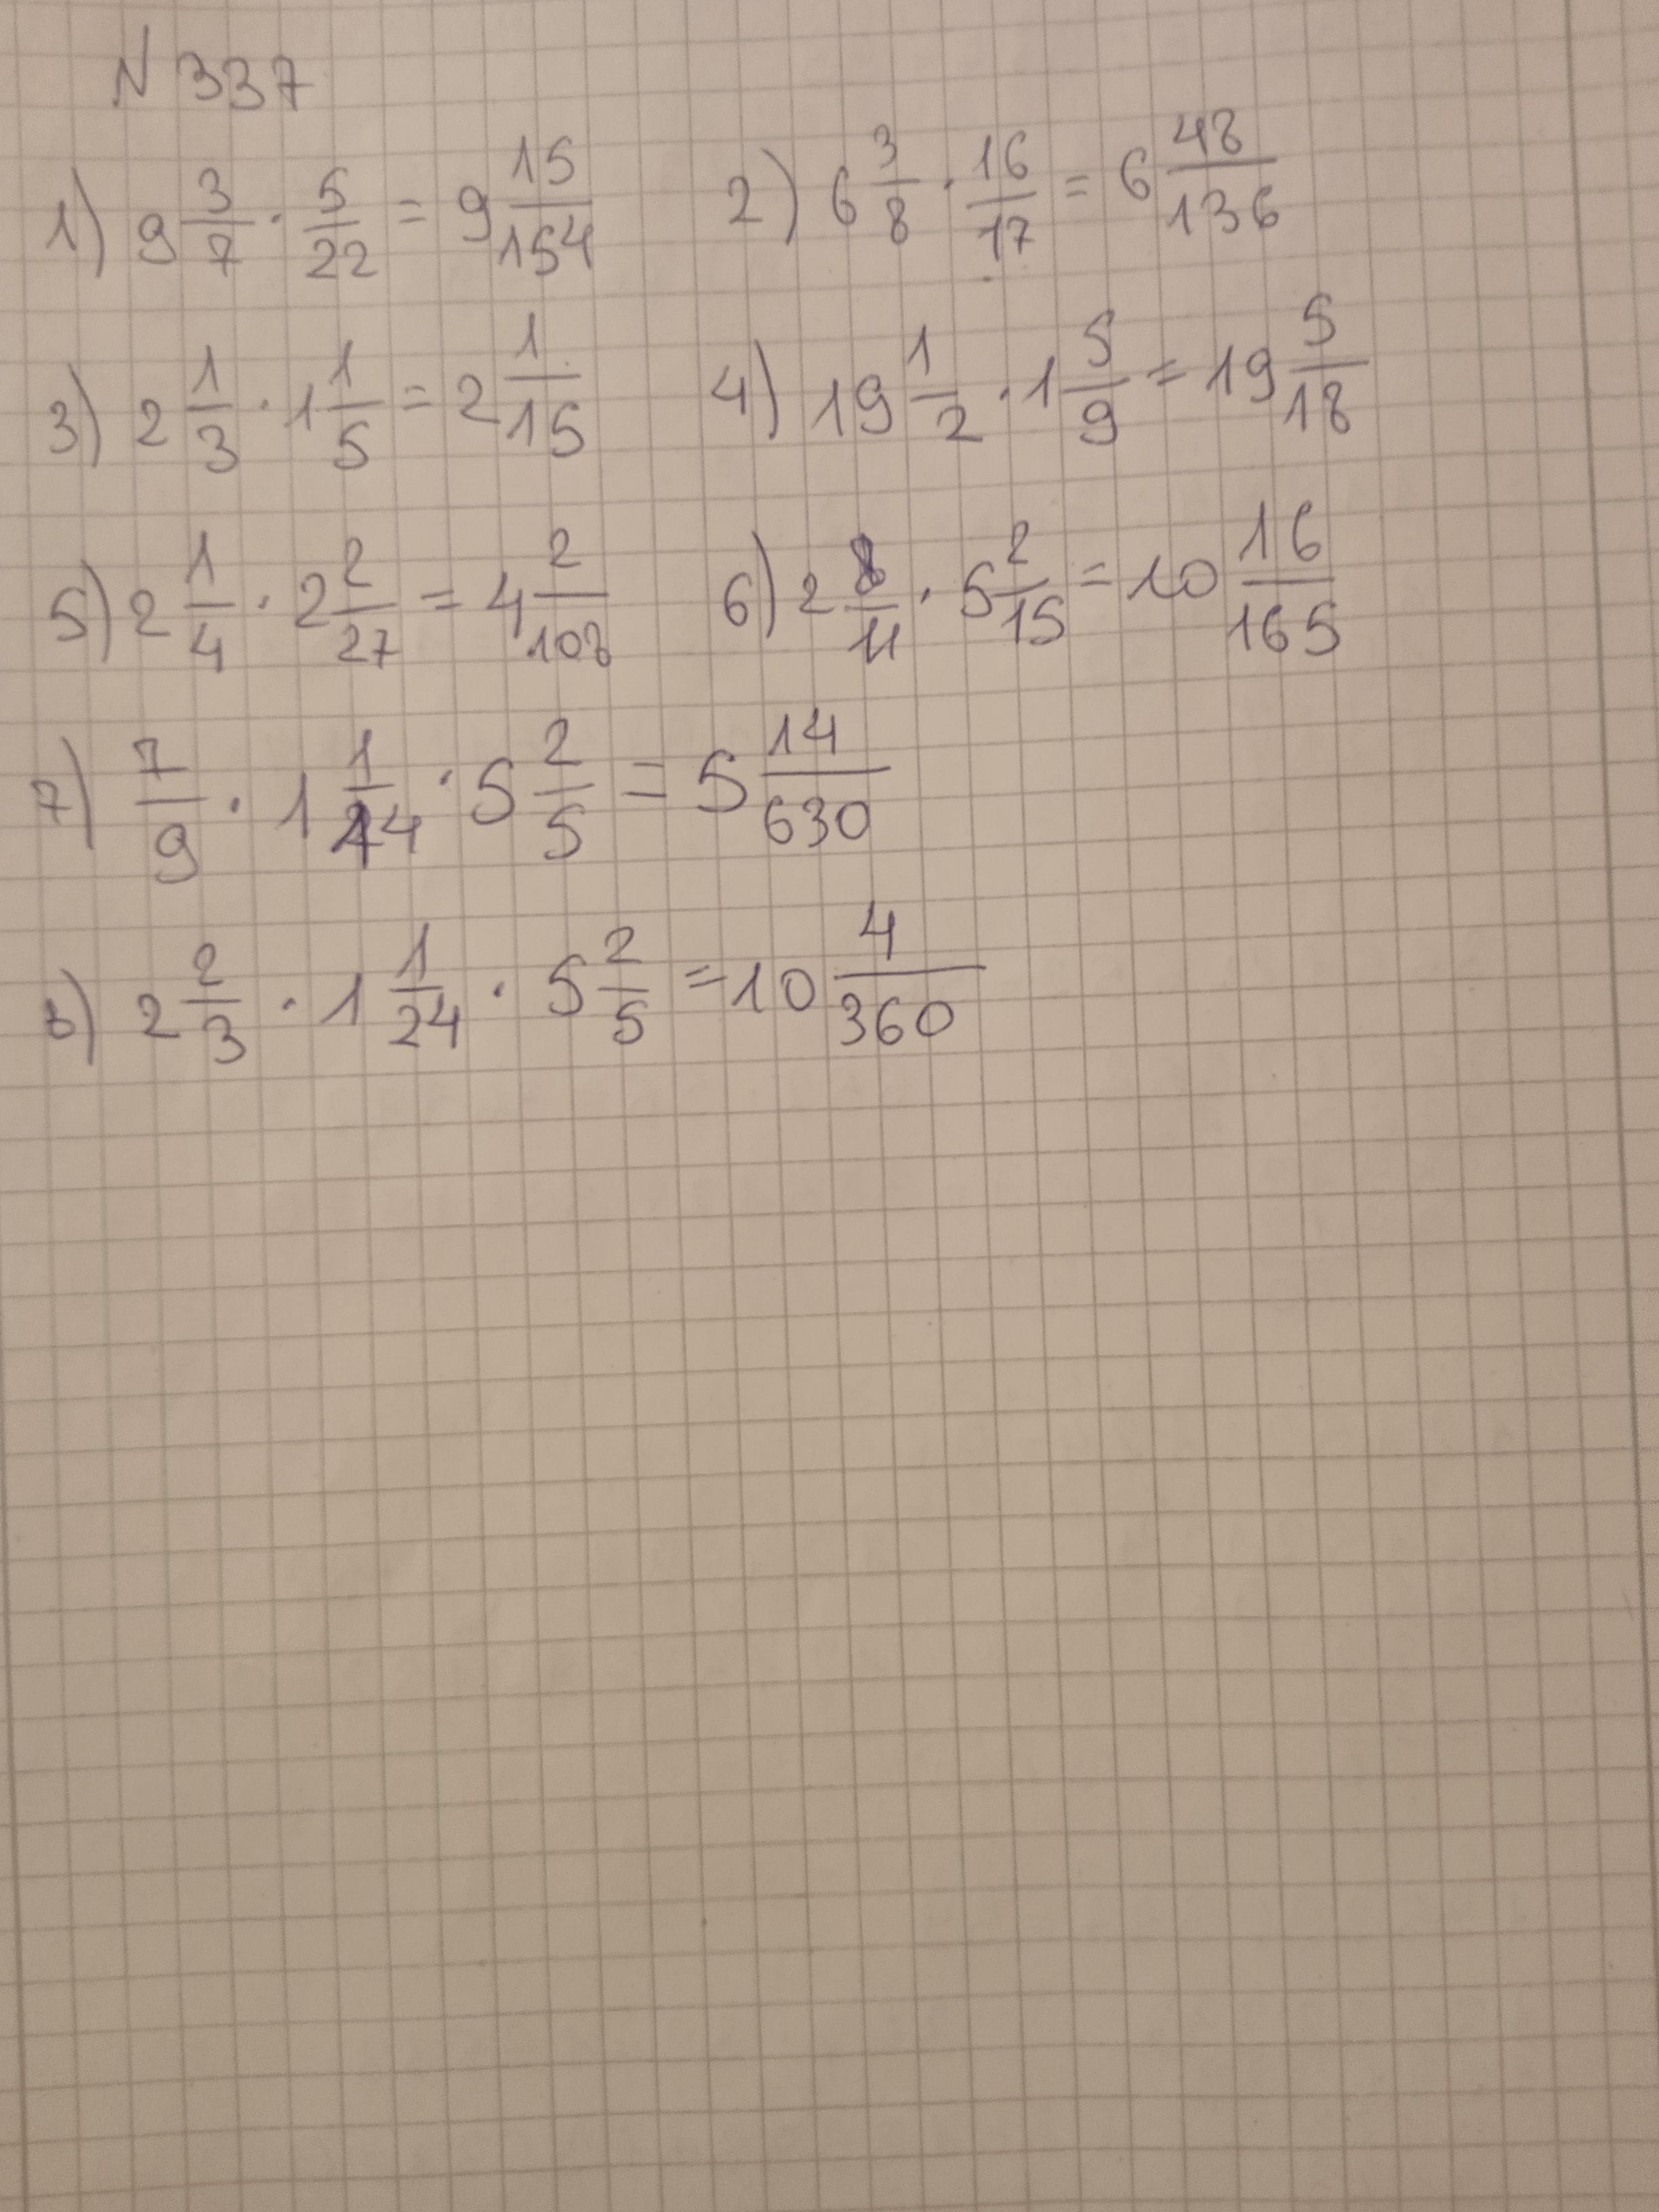 N 337
1) 9 3/7 · 5/22 = 9 15/154 2) 6 3/8 · 16/17 = 6 48/136
3) 2 1/3 · 1 1/5 = 2 1/15 4) 19 1/2 · 1 5/9 = 19 5/18
5) 2 1/4 · 2 2/27 = 4 2/108 6) 2 8/11 · 5 2/15 = 10 16/165
7) 7/9 · 1 1/14 · 5 2/5 = 5 14/630
8) 2 2/3 · 1 1/24 · 5 2/5 = 10 4/360